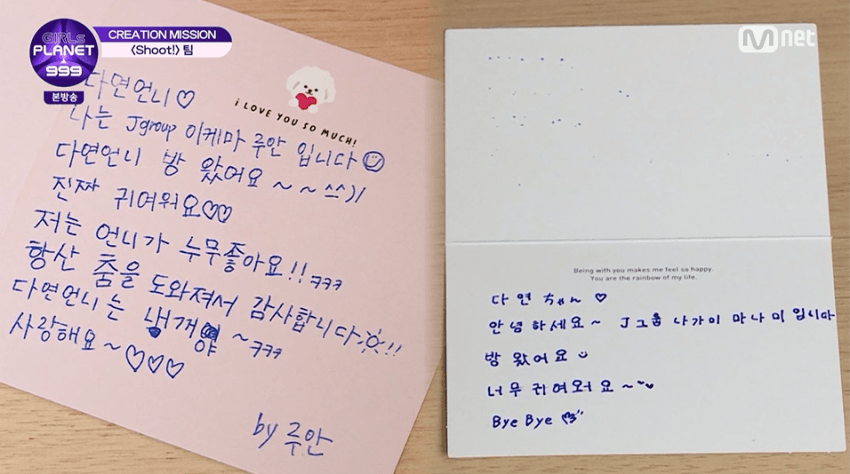 GIRLS
PLANET
999
본방송
CREATION MISSION
<Shoot!> 팀
Mnet
다면언니♡
I LOVE YOU SO MUCH!
나는 Jgroup 이케마 루안 입니다☺
다면언니 방 왔어요 ~ ~ ^^)/
진짜 귀여워요♡♡
저는 언니가 누무좋아요!! ㅋㅋㅋ
항산 춤을 도와져서 감사합니다☼!!
다면언니는 내꺼양 ~ㅋㅋㅋ
사랑해요~♡♡♡
by 루안
Being with you makes me feel so happy.
You are the rainbow of my life.
다연 ちゃん ♡
안녕하세요~ J그룹 나가이 마나미 입니다
방 왔어요
너무 귀여워요~~♥
Bye Bye